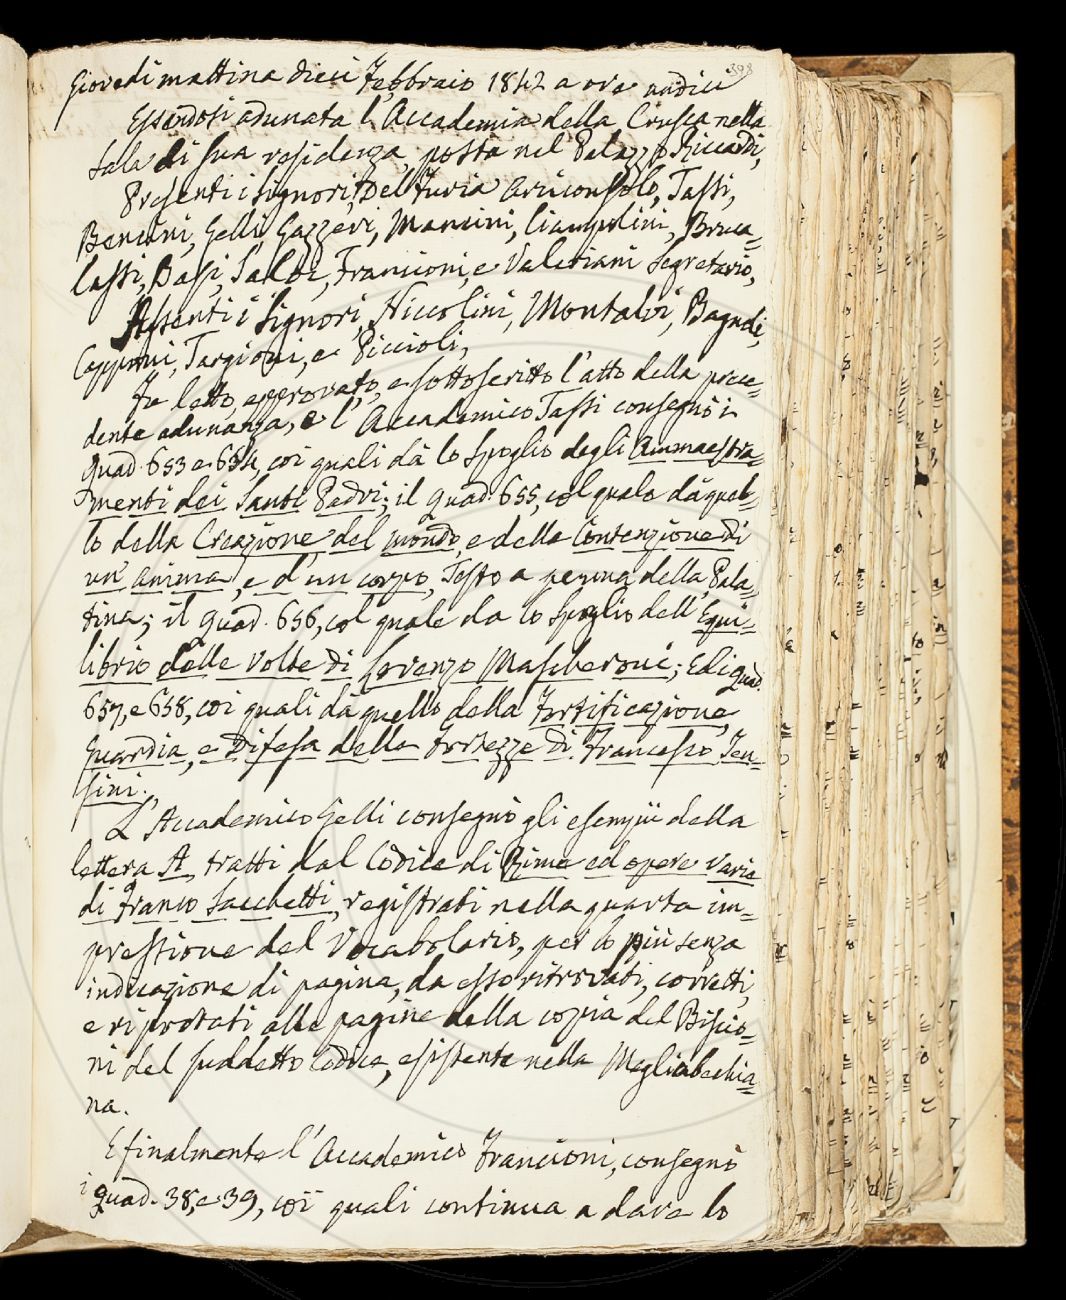 398
Giovedi mattina dieci Febbraio 1842 a ore undici
Essendosi adunata l'Accademia della Crusca nella
Sala di sua residenza, posta nel Palazzo Riccardi,
Presenti i Signori, Del Furia Arciconsolo, Tassi,
Bencini, Gelli, Gazzeri, Mancini, Ciampolini, Bruca=
lassi, Basi, Salvi, Francioni, e Valeriani Segretario,
Assenti i Signori, Niccolini, Montalvi, Bagnoli,
Capponi, Targioni, e Piccioli,
Fu letto, approvato, e sottoscritto l'atto della prece=
dente adunanza, e l'Accademico Tassi consegnò i
Quad. 653 e 654, coi quali dà lo Spoglio degli Ammaestra=
menti dei Santi Padri; il quad. 655, col quale dà quel=
lo della Creazione del mondo, e della Contenzione di
un' anima, e d'un corpo, Testo a penna della Pala=
tina; il quad. 656, col quale da lo Spoglio dell' Equi=
librio delle volte di Lorenzo Mascheroni; Ed i quad.
657, e 658, coi quali dà quello della Fortificazione,
Guardia, e Difesa delle Fortezze di Francesco Ten=
sini.
L'Accademico Gelli consegnò gli esempii della
lettera A, tratti dal Codice di Rime ed opere varie
di Franco Sacchetti, registrati nella quarta im=
pressione del Vocabolario, per lo più senza
indicazione di pagina, da esso ritrovati, corretti,
e riportati alle pagine della copia del Biscio=
ni del suddetto Codice, esistente nella Magliabechia=
na.
E finalmente l'Accademico Francioni, consegnò
i quad. 38, e 39, coi quali continua a dare lo